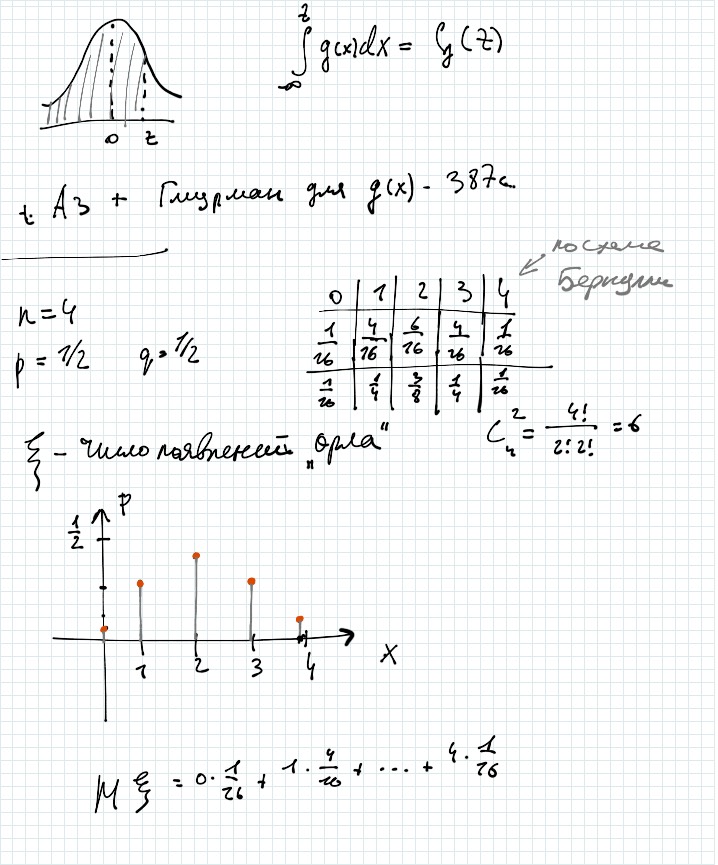 z
∫ g(x)dx = G(z)
-∞
0 z
t. A3 + Гмурман для g(x) - 387с.
по схеме
Бернулли
n = 4
p = 1/2 q = 1/2
0 | 1 | 2 | 3 | 4
1/16 | 4/16 | 6/16 | 4/16 | 1/16
1/16 | 1/4 | 3/8 | 1/4 | 1/16
C₄² = 4!/(2!2!) = 6
ξ - число появлений „орла“
P
1/2
1 2 3 4
X
Mξ = 0·1/16 + 1·4/16 + ... + 4·1/16